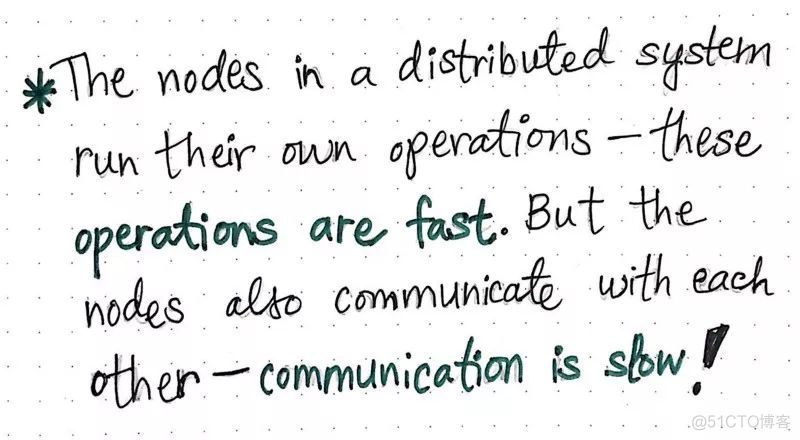 *The nodes in a distributed system
run their own operations — these
operations are fast. But the
nodes also communicate with each
other — communication is slow!
@51CTO博客